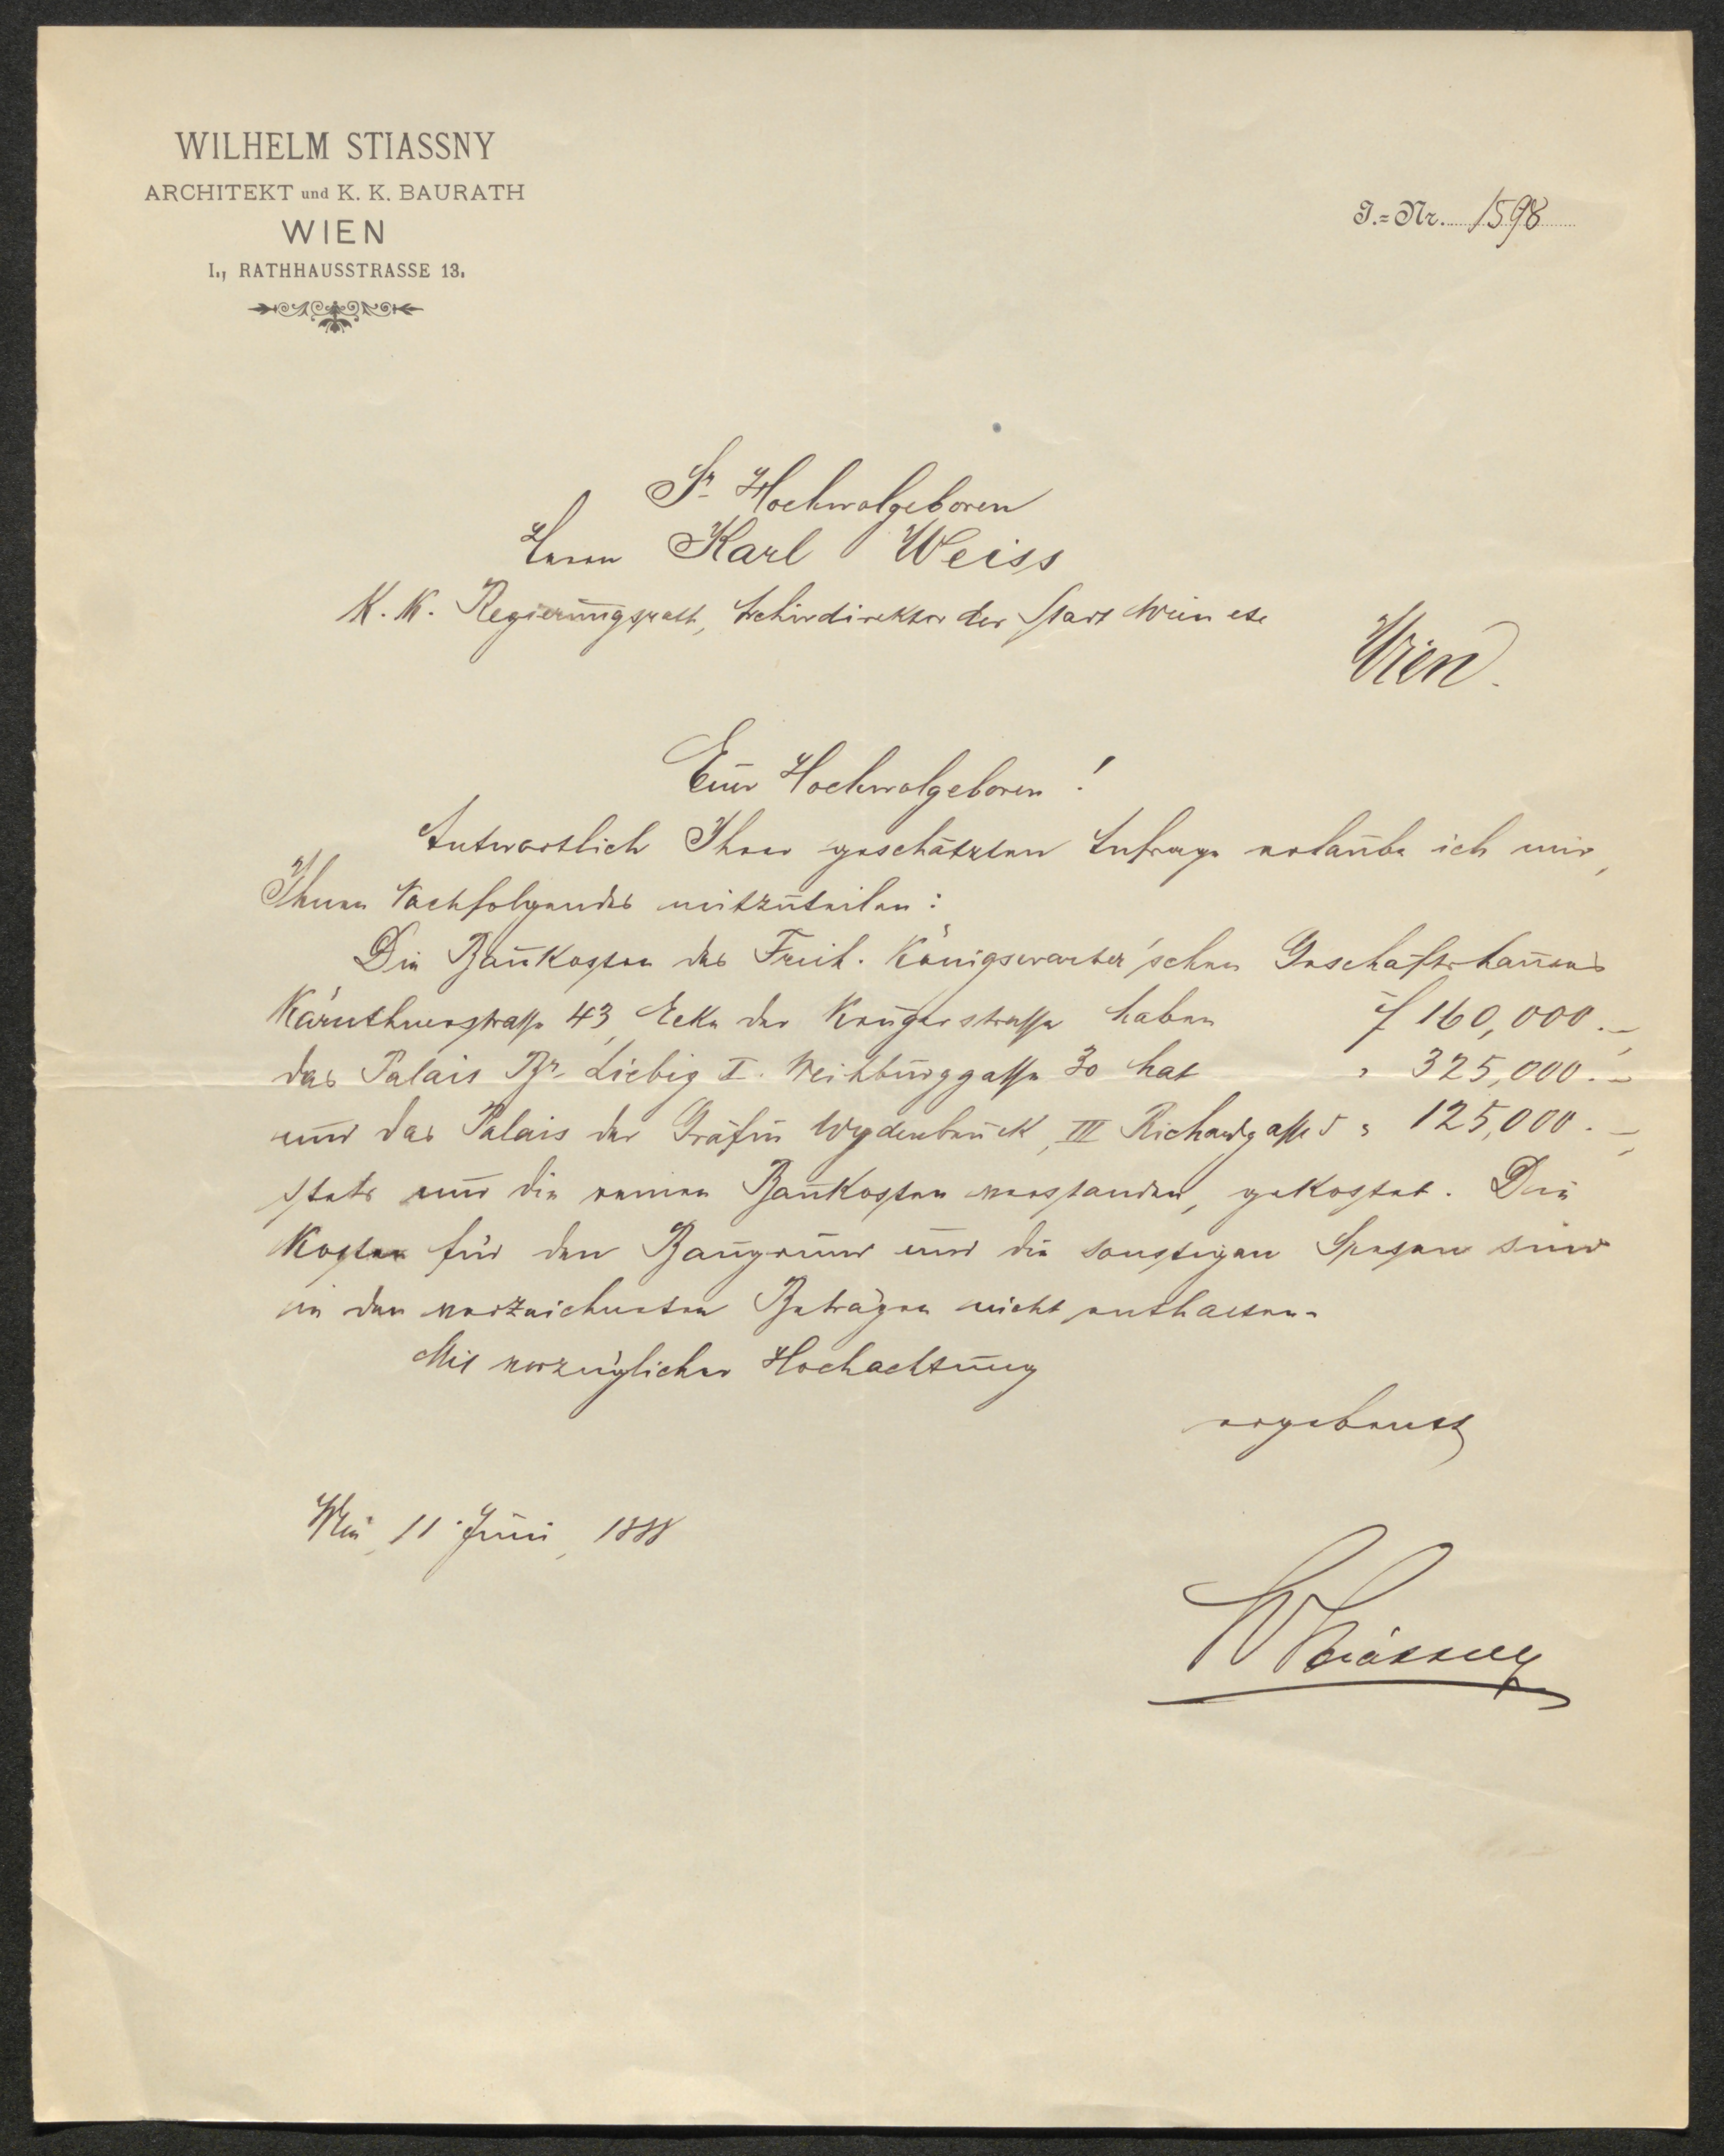 WILHELM STIASSNY
ARCHITEKT und K. K. BAURATH
WIEN
I., RATHHAUSSTRASSE 13.
J.=Nr. 1598
Sr. Hochwolgeboren
Herrn Karl Weiss
K. K. Regierungsrath, Archivdirektor der Stadt Wien etc
Wien.
Euer Hochwolgeboren!
Antwortlich Ihrer geschätzten Anfrage erlaube ich mir,
Ihnen Nachfolgendes mitzuteilen:
Die Baukosten des Freih. Königswarter'schen Geschäftshauses
Kärnthnerstrasse 43, Ecke der Krugerstrasse haben f 160,000.–
das Palais Br. Liebig I. Weihburggasse 30 hat " 325,000.–
und das Palais der Gräfin Wydenbruck, III Richardgasse 5 " 125,000.–
stets nur die reinen Baukosten verstanden, gekostet. Die
Kosten für den Baugrund und die sonstigen Spesen sind
in den verzeichneten Beträgen nicht enthalten.
Mit vorzüglicher Hochachtung
ergebenst
Wien, 11. Juni, 1888
WStiassny